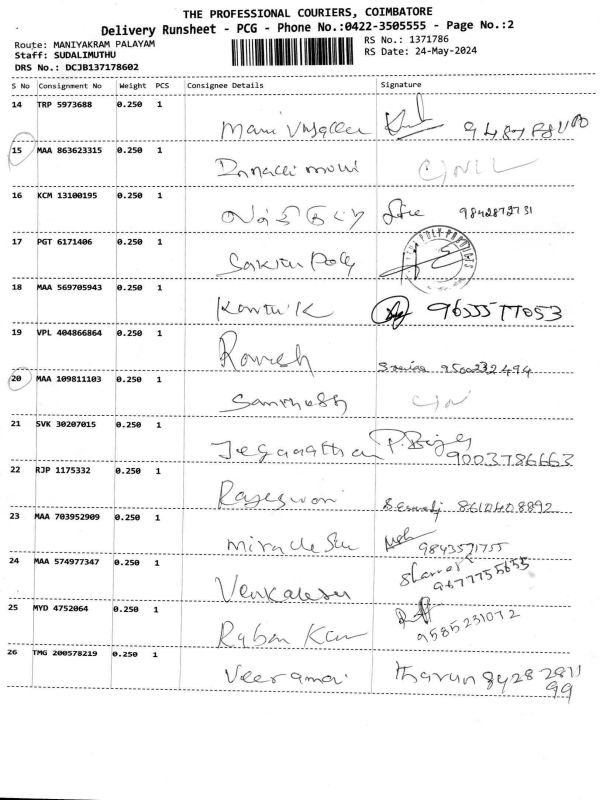 THE PROFESSIONAL COURIERS, COIMBATORE
Delivery Runsheet - PCG - Phone No.:0422-3505555 - Page No.:2
Route: MANIYAKRAM PALAYAM
RS No.: 1371786
Staff: SUDALIMUTHU
RS Date: 24-May-2024
DRS No.: DCJB137178602
S No Consignment No Weight PCS Consignee Details Signature
14 TRP 5973688 0.250 1
15 MAA 863623315 0.250 1
16 KCM 13100195 0.250 1 9842872731
17 PGT 6171406 0.250 1 Sakthi Poly
18 MAA 569705943 0.250 1 Karthik 9655577053
19 VPL 404866864 0.250 1 Ramesh 9500232494
20 MAA 109811103 0.250 1 Santhosh
21 SVK 30207015 0.250 1 Jeganathan 9003786663
22 RJP 1175332 0.250 1 Rajeswari 8610408892
23 MAA 703952909 0.250 1 9843571755
24 MAA 574977347 0.250 1 Venkatesh 9677755655
25 MYD 4752064 0.250 1 9585231072
26 TMG 200578219 0.250 1 Veeramani Tharun 84282811
99